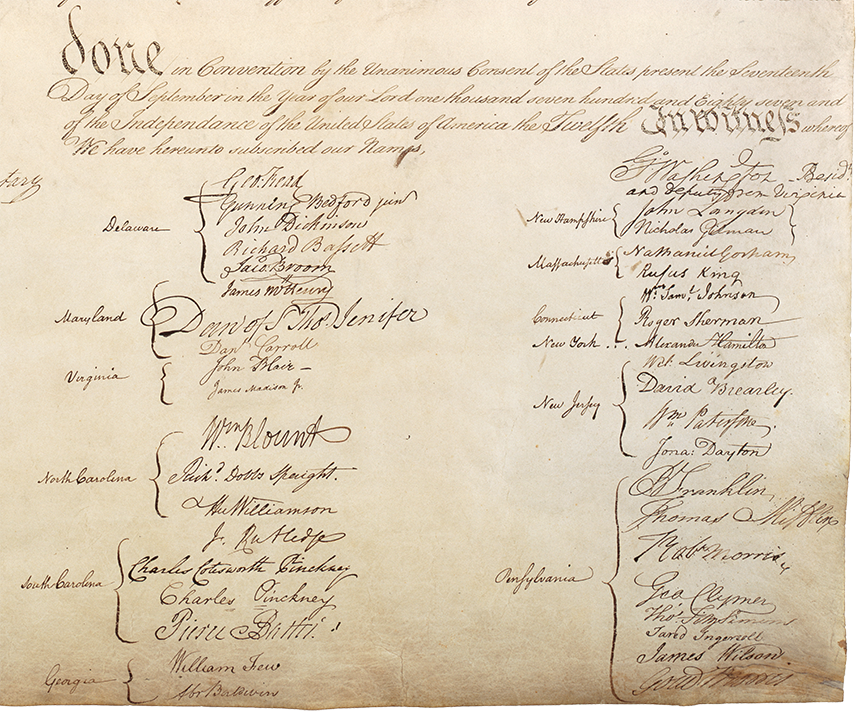 done in Convention by the Unanimous Consent of the States present the Seventeenth
Day of September in the Year of our Lord one thousand seven hundred and Eighty seven and
of the Independance of the United States of America the Twelfth In witness whereof
We have hereunto subscribed our Names,
tary
Delaware
Geo: Read
Gunning Bedford jun
John Dickinson
Richard Bassett
Jaco: Broom
Maryland
James McHenry
Dan of St Thos. Jenifer
Danl Carroll
Virginia
John Blair —
James Madison Jr.
North Carolina
Wm Blount
Richd. Dobbs Spaight.
Hu Williamson
South Carolina
J. Rutledge
Charles Cotesworth Pinckney
Charles Pinckney
Pierce Butler.
Georgia
William Few
Abr Baldwin
Go. Washington Presidt.
and deputy from Virginia
New Hampshire
John Langdon
Nicholas Gilman
Massachusetts
Nathaniel Gorham
Rufus King
Connecticut
Wm. Saml. Johnson
Roger Sherman
New York . . . Alexander Hamilton
New Jersey
Wil: Livingston
David Brearley.
Wm. Paterson.
Jona: Dayton
Pensylvania
B Franklin
Thomas Mifflin
Robt Morris
Geo. Clymer
Thos. FitzSimons
Jared Ingersoll
James Wilson.
Gouv Morris